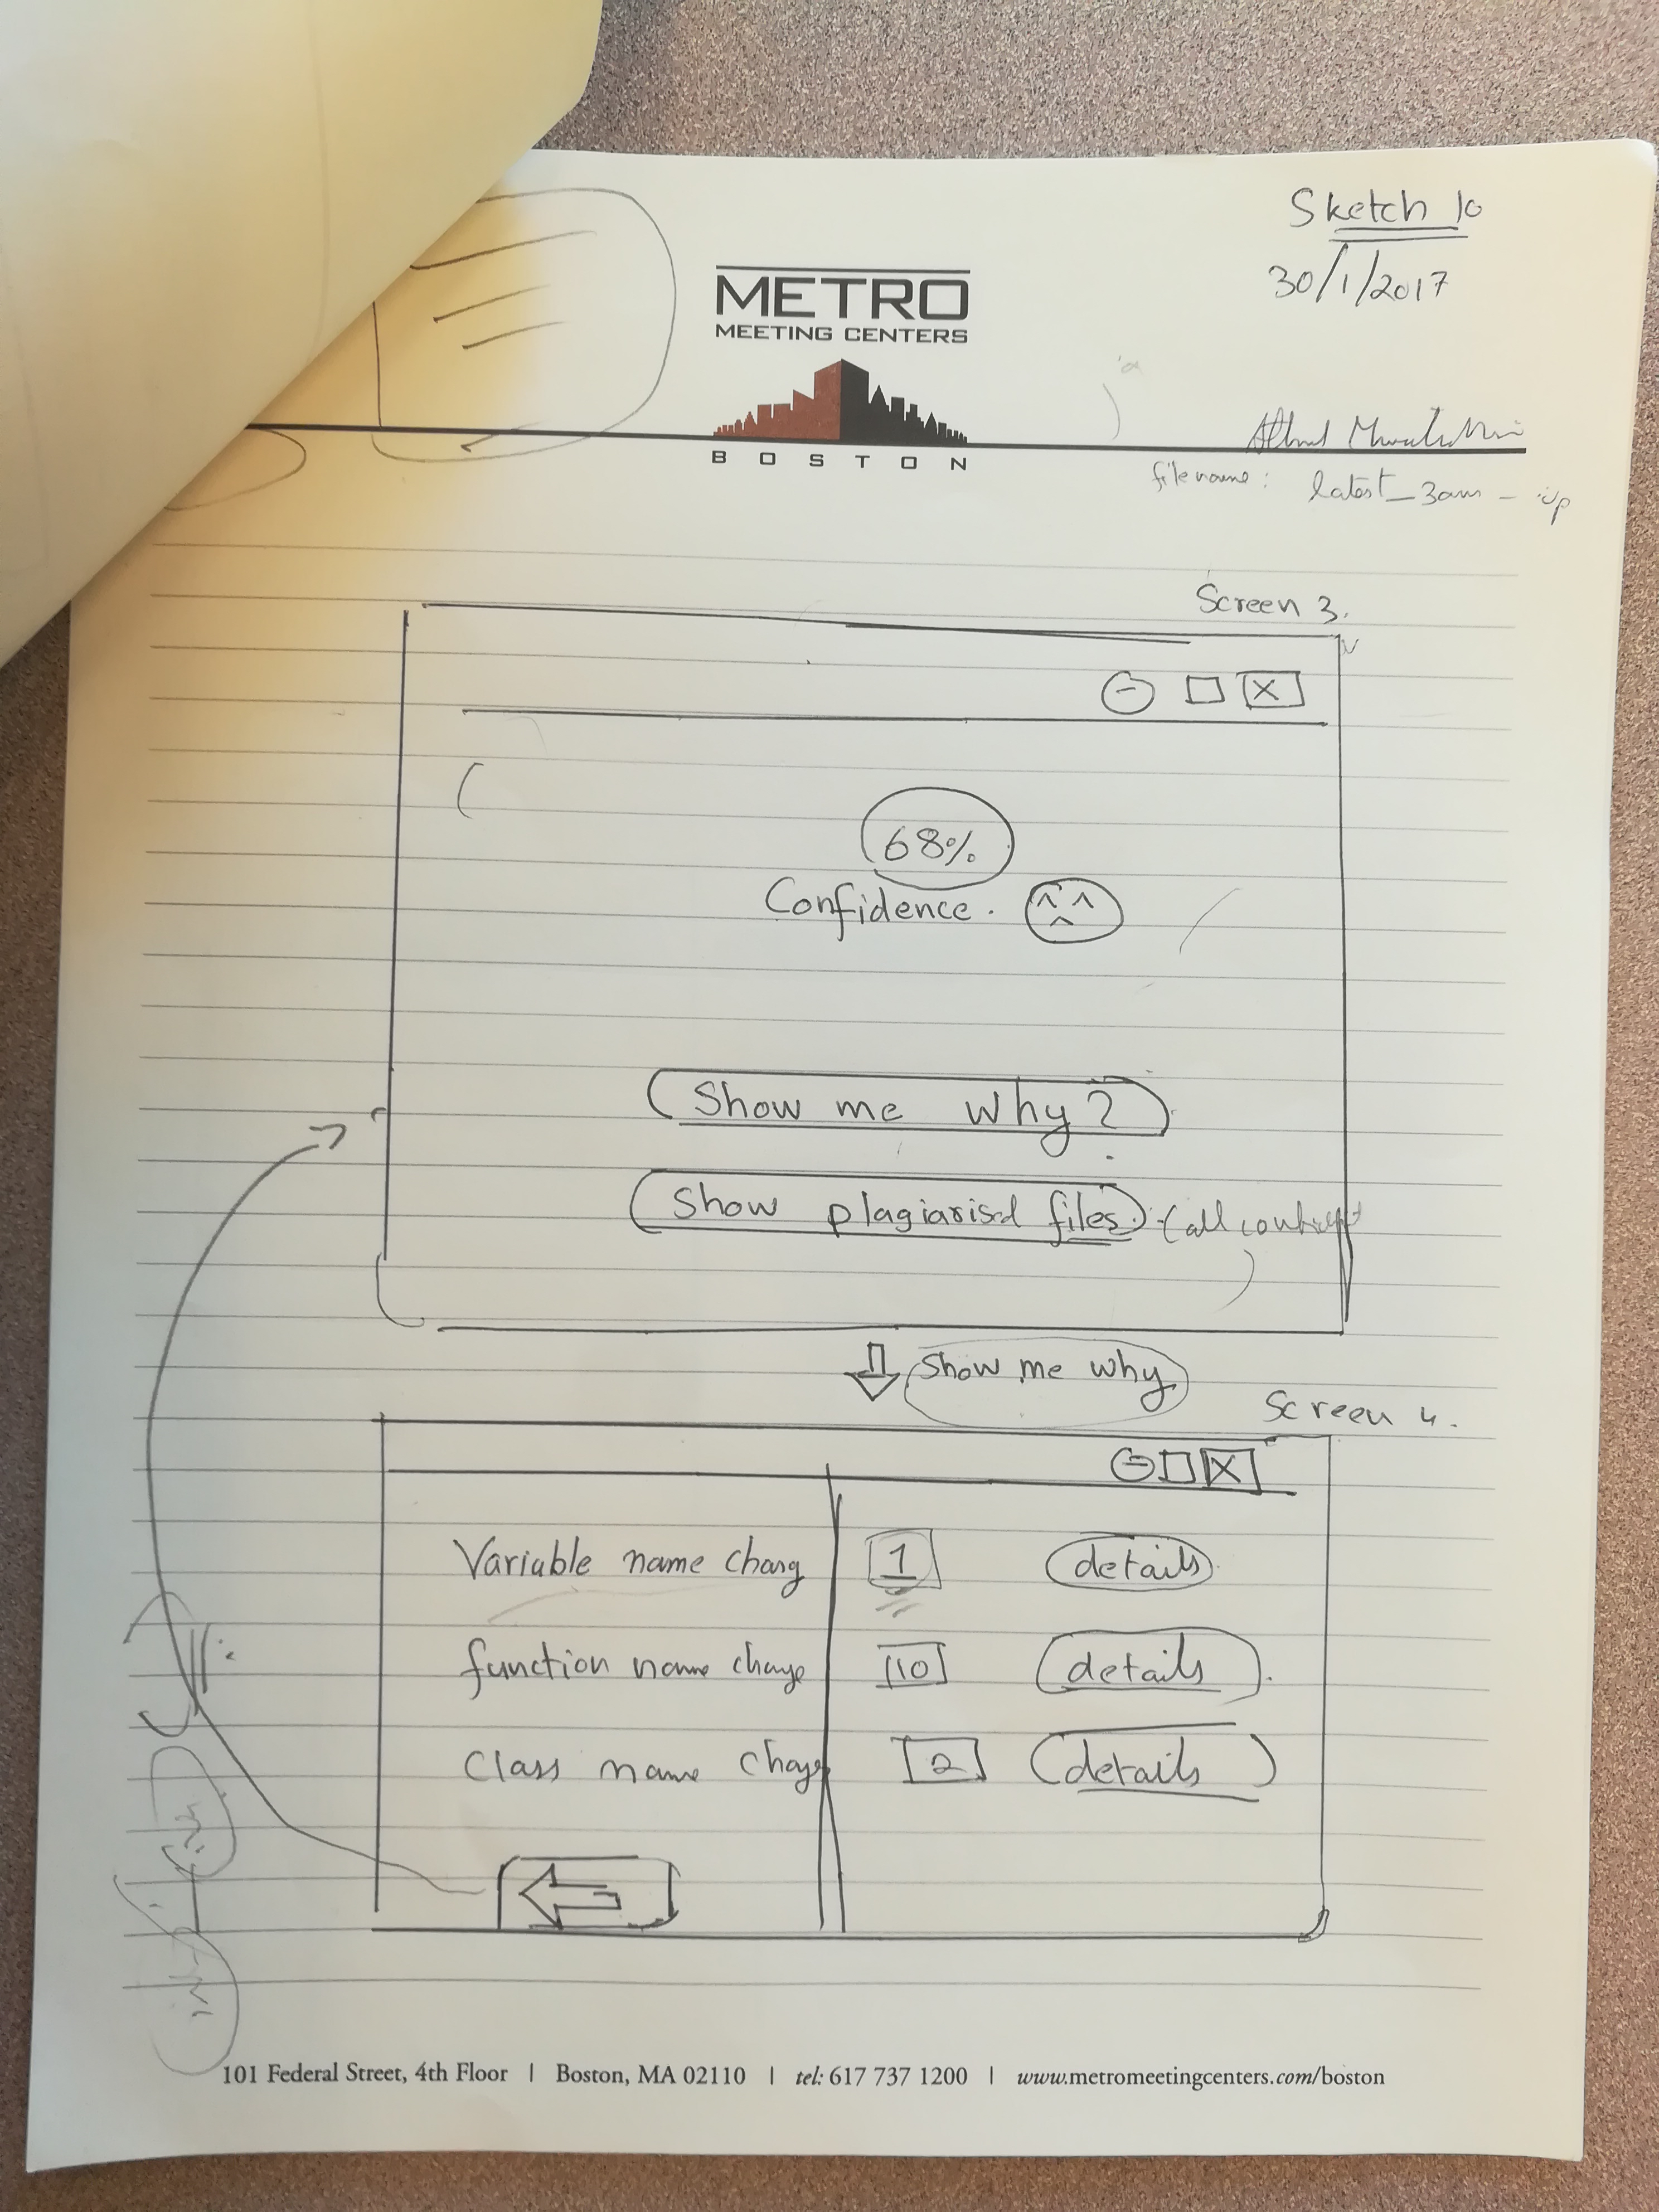 Sketch 10
30/1/2017
METRO
MEETING CENTERS
BOSTON
filename: latest_3am_
Screen 3.
68%
Confidence.
Show me why?
Show plagiarisd files. (all
Show me why
Screen 4.
Variable name chang 1 details
function name change 10 details
Class name change 2 details
101 Federal Street, 4th Floor | Boston, MA 02110 | tel: 617 737 1200 | www.metromeetingcenters.com/boston